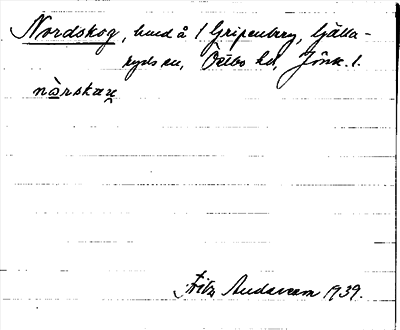 Nordskog, lund å 1 Gripenberg, Gälla-
ryds sn, Östbo hd, Jönk. l.
nàrskaɯ
Fritz Andersson 1939.